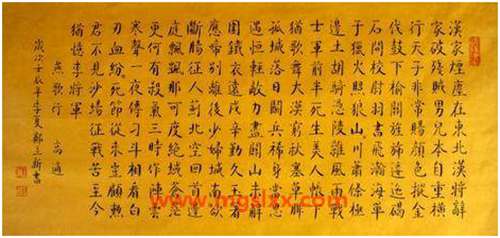 漢家煙塵在東北漢將辭
家破殘賊男兒本自重橫
行天子非常賜顏色摐金
伐鼓下榆關旌旆逶迤碣
石間校尉羽書飛瀚海單
于獵火照狼山川蕭條極
邊土胡騎憑陵雜風雨戰
士軍前半死生美人帳下
猶歌舞大漠窮秋塞草腓
孤城落日鬥兵稀身當恩
遇恒輕敵力盡關山未解
圍鐵衣遠戍辛勤久玉箸
應啼別離後少婦城南欲
斷腸征人薊北空回首邊
庭飄颻那可度絕域蒼茫
更何有殺氣三時作陣雲
寒聲一夜傳刁斗相看白
刃血紛死節從來豈顧勲
君不見沙場征戰苦至今
猶憶李將軍
燕歌行 高適
歲次丁亥年季夏鄭立新書
www.mgslxx.com